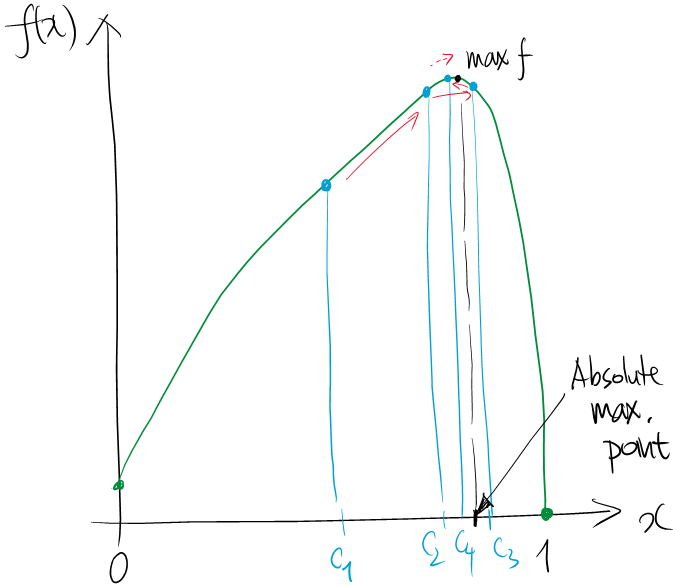 f(x)
max f
Absolute
max.
point
x
0
C1
C2
C4
C3
1